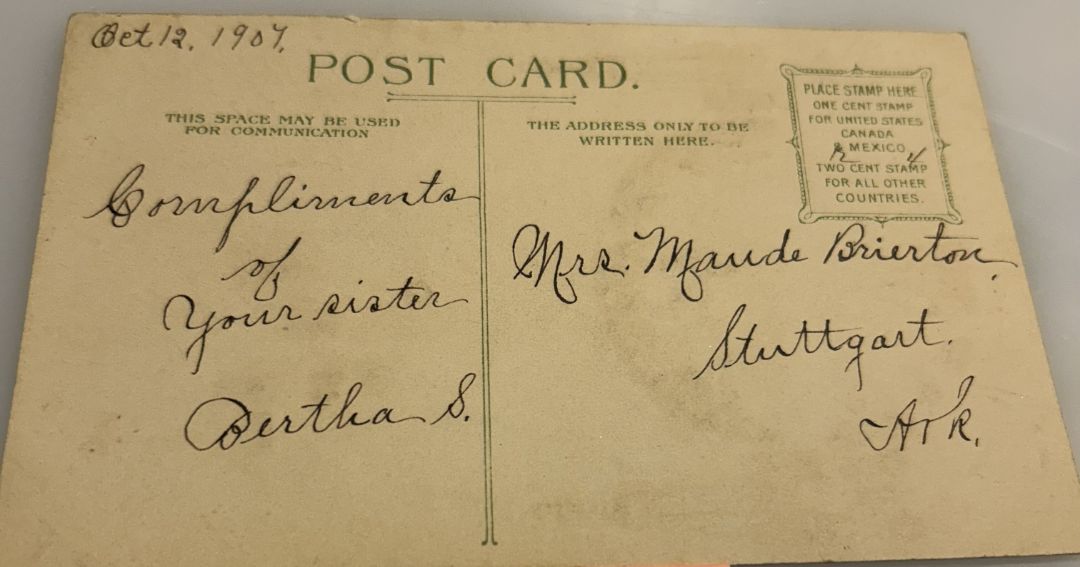 Oct 12, 1907.
POST CARD.
THIS SPACE MAY BE USED
FOR COMMUNICATION
THE ADDRESS ONLY TO BE
WRITTEN HERE.
PLACE STAMP HERE
ONE CENT STAMP
FOR UNITED STATES
CANADA
& MEXICO
TWO CENT STAMP
FOR ALL OTHER
COUNTRIES.
Compliments
of
Your sister
Bertha S.
Mrs. Maude Brierton.
Stuttgart.
Ark.